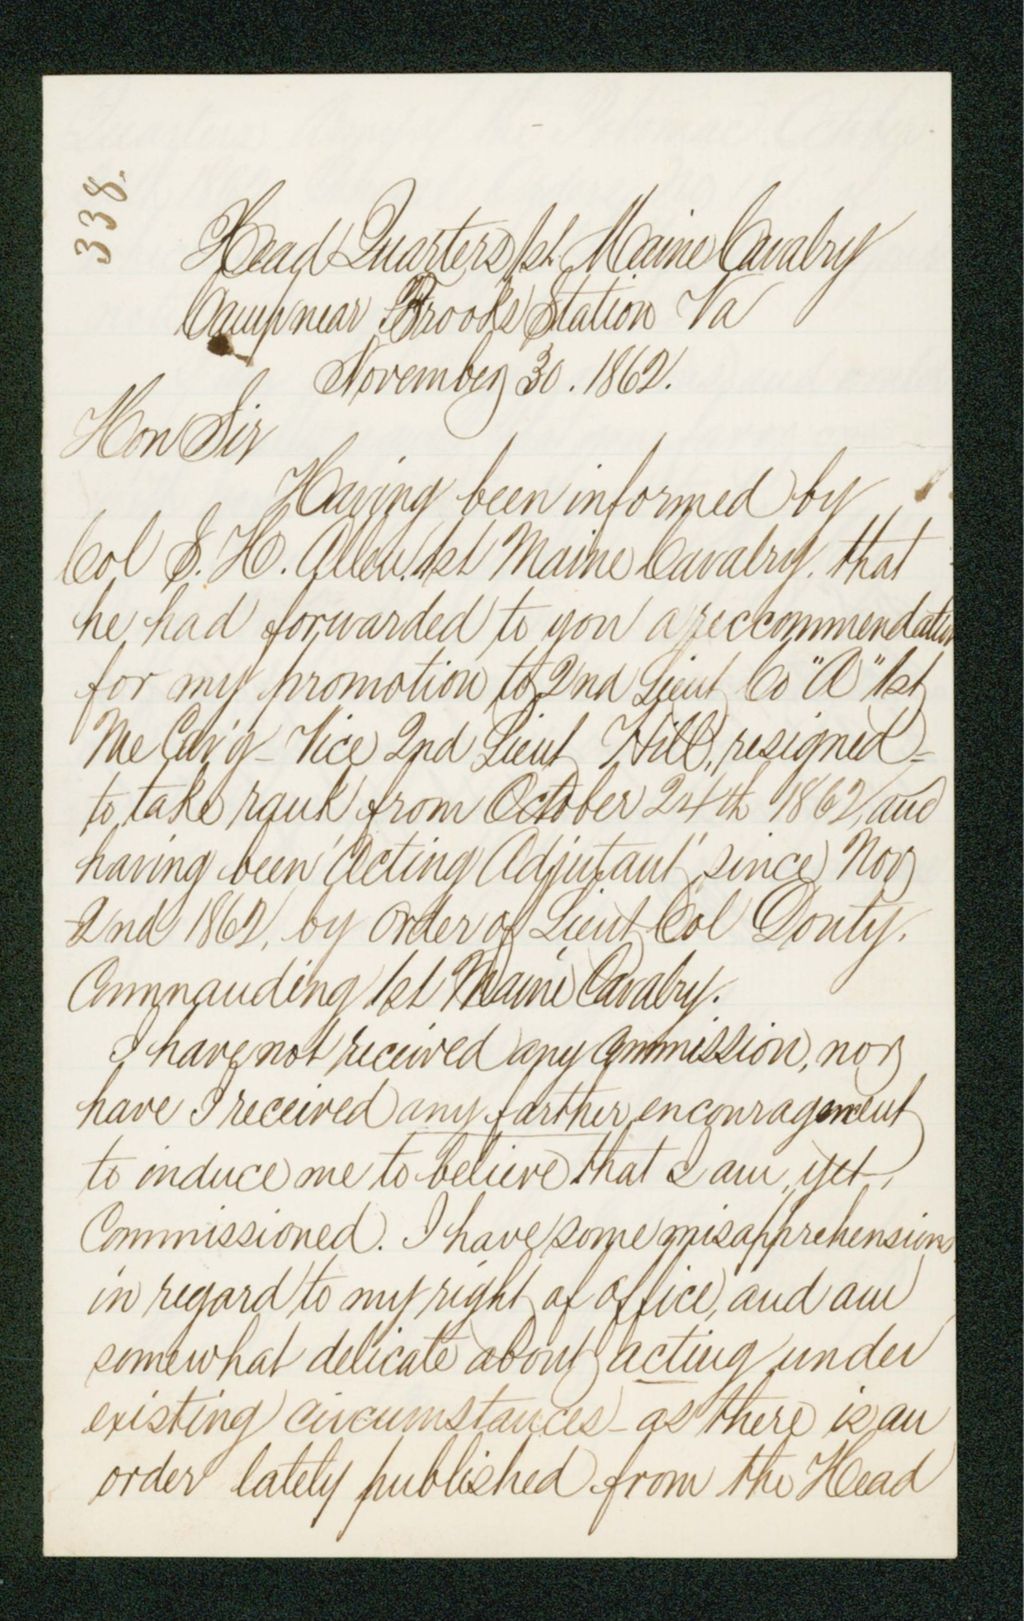 338.
Head Quarters 1st Maine Cavalry
Camp near Brooks Station Va
November 30. 1862.
Hon Sir
Having been informed by
Col S. H. Allen. 1st Maine Cavalry. that
he had forwarded to you a reccommendation
for my promotion to 2nd Lieut Co "A" 1st
Me Cav'y - Vice 2nd Lieut Hill, resigned -
to take rank from October 24th 1862, and
having been "Acting Adjutant" since Nov
2nd 1862, by order of Lieut Col Douty.
Commanding 1st Maine Cavalry.
I have not received any commission, nor
have I received any farther encouragement
to induce me to believe that I am, yet,
Commissioned. I have some misapprehensions
in regard to my right of office, and am
somewhat delicate about acting under
existing circumstances - as there is an
order lately published from the Head